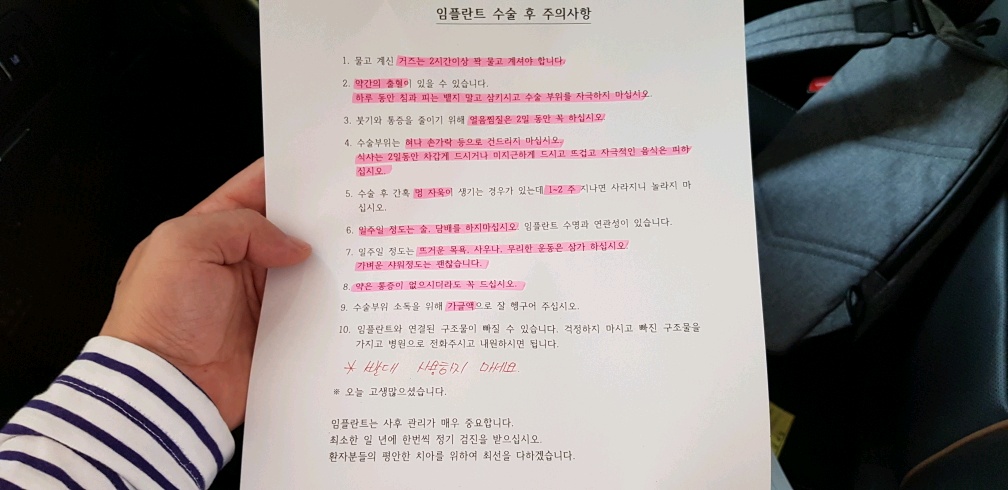 임플란트 수술 후 주의사항
1. 물고 계신 거즈는 2시간이상 꽉 물고 계셔야 합니다.
2. 약간의 출혈이 있을 수 있습니다.
하루 동안 침과 피는 뱉지 말고 삼키시고 수술 부위를 자극하지 마십시오.
3. 붓기와 통증을 줄이기 위해 얼음찜질은 2일 동안 꼭 하십시오.
4. 수술부위는 혀나 손가락 등으로 건드리지 마십시오.
식사는 2일동안 차갑게 드시거나 미지근하게 드시고 뜨겁고 자극적인 음식은 피하
십시오.
5. 수술 후 간혹 멍 자욱이 생기는 경우가 있는데 1~2 주 지나면 사라지니 놀라지 마
십시오.
6. 일주일 정도는 술, 담배를 하지마십시오. 임플란트 수명과 연관성이 있습니다.
7. 일주일 정도는 뜨거운 목욕, 사우나, 무리한 운동은 삼가 하십시오.
가벼운 샤워정도는 괜찮습니다.
8. 약은 통증이 없으시더라도 꼭 드십시오.
9. 수술부위 소독을 위해 가글액으로 잘 헹구어 주십시오.
10. 임플란트와 연결된 구조물이 빠질 수 있습니다. 걱정하지 마시고 빠진 구조물을
가지고 병원으로 전화주시고 내원하시면 됩니다.
* 빨대 사용하지 마세요.
※ 오늘 고생많으셨습니다.
임플란트는 사후 관리가 매우 중요합니다.
최소한 일 년에 한번씩 정기 검진을 받으십시오.
환자분들의 평안한 치아를 위하여 최선을 다하겠습니다.